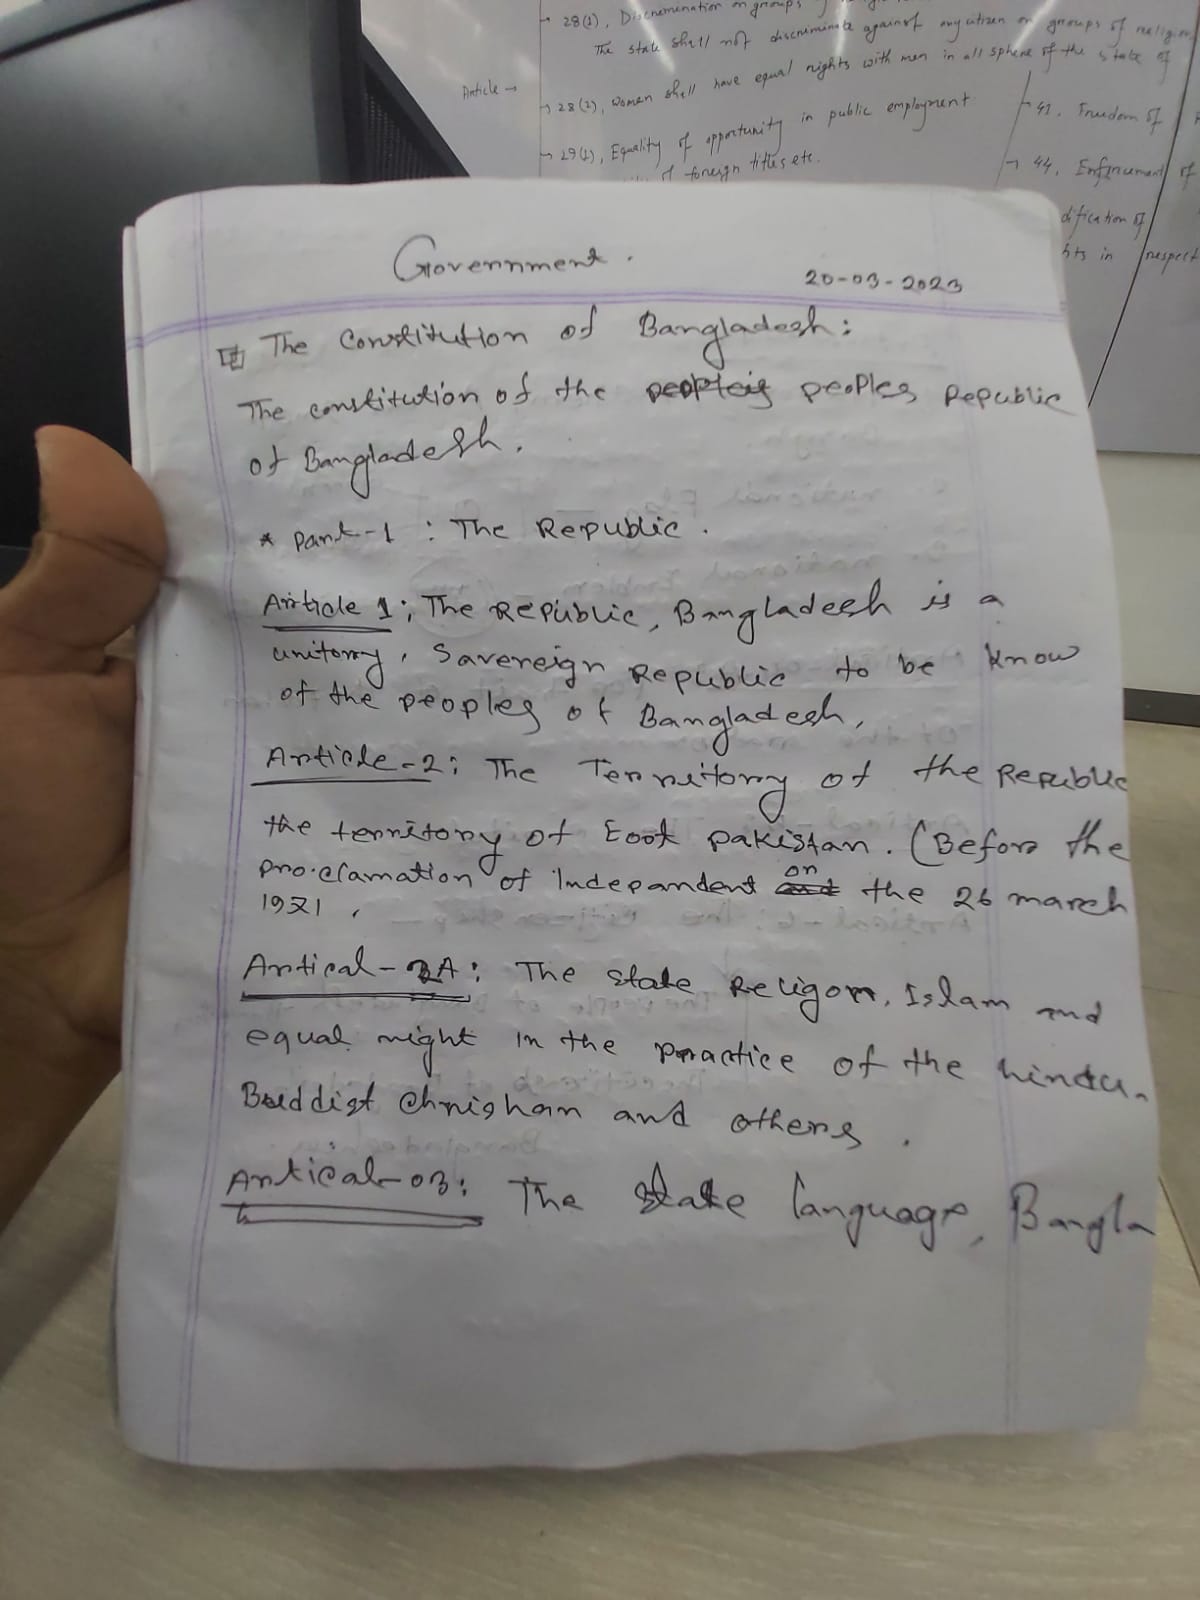 28(1), Discrimination on groups of
The state shall not discriminate against any citizen on groups of religion
Article → 28(2), Women shall have equal rights with men in all sphere of the state of
29(1), Equality of opportunity in public employment
of foreign titles etc.
41. Freedom of
44. Enforcement of
dification of
hts in respect
Government.
20-03-2023
The Constitution of Bangladesh:
The constitution of the peoples Republic
of Bangladesh.
* Part-1 : The Republic.
Article 1: The Republic, Bangladesh is a
unitory, Savereign Republic to be know
of the peoples of Bangladesh,
Article-2: The Territory of the Republic
the territory of Eoot pakistan. (Before the
proclamation of Independent on the 26 march
1971,
Artical-2A: The state Religon, Islam and
equal right in the practice of the hindu,
Buddist Chrisham and others.
Artical-03: The state language, Bangla